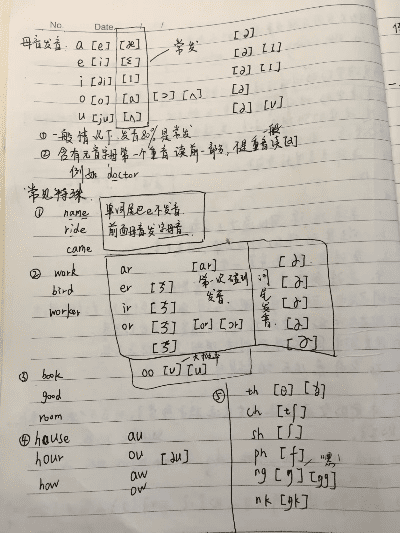 No.    Date    /    /
母音发音  a [e] [æ]  常发  [ə]
e [i] [ɛ]  [ə] [I]
i [ai] [I]  [ə] [I]
o [o] [a] [ɔ] [ʌ]  [ə]
u [ju] [ʌ]  [ə] [U]
① 一般情况下,发音80%是常发
② 含有元音字母第一个重音读前一部分,非重音一般读[ə]
例如 doctor
常见特殊
① name  单词尾巴e不发音
ride  前面母音发字母音
came
② work  ar  [ar]  [ɚ]
bird  er [ɝ]  第一次碰到发音  词尾发音  [ɚ]
worker  ir [ɝ]  [ɚ]
or [ɝ] [or] [ɔr]  [ɚ]
[ɝ]  [ɚ]
③ book  oo [U] [u]
good
room
④ house  au
hour  ou [au]
how  aw
ow
⑤ th [θ] [ð]
ch [tʃ]
sh [ʃ]
ph [f]
ng [ŋ] [ŋg]
nk [ŋk]